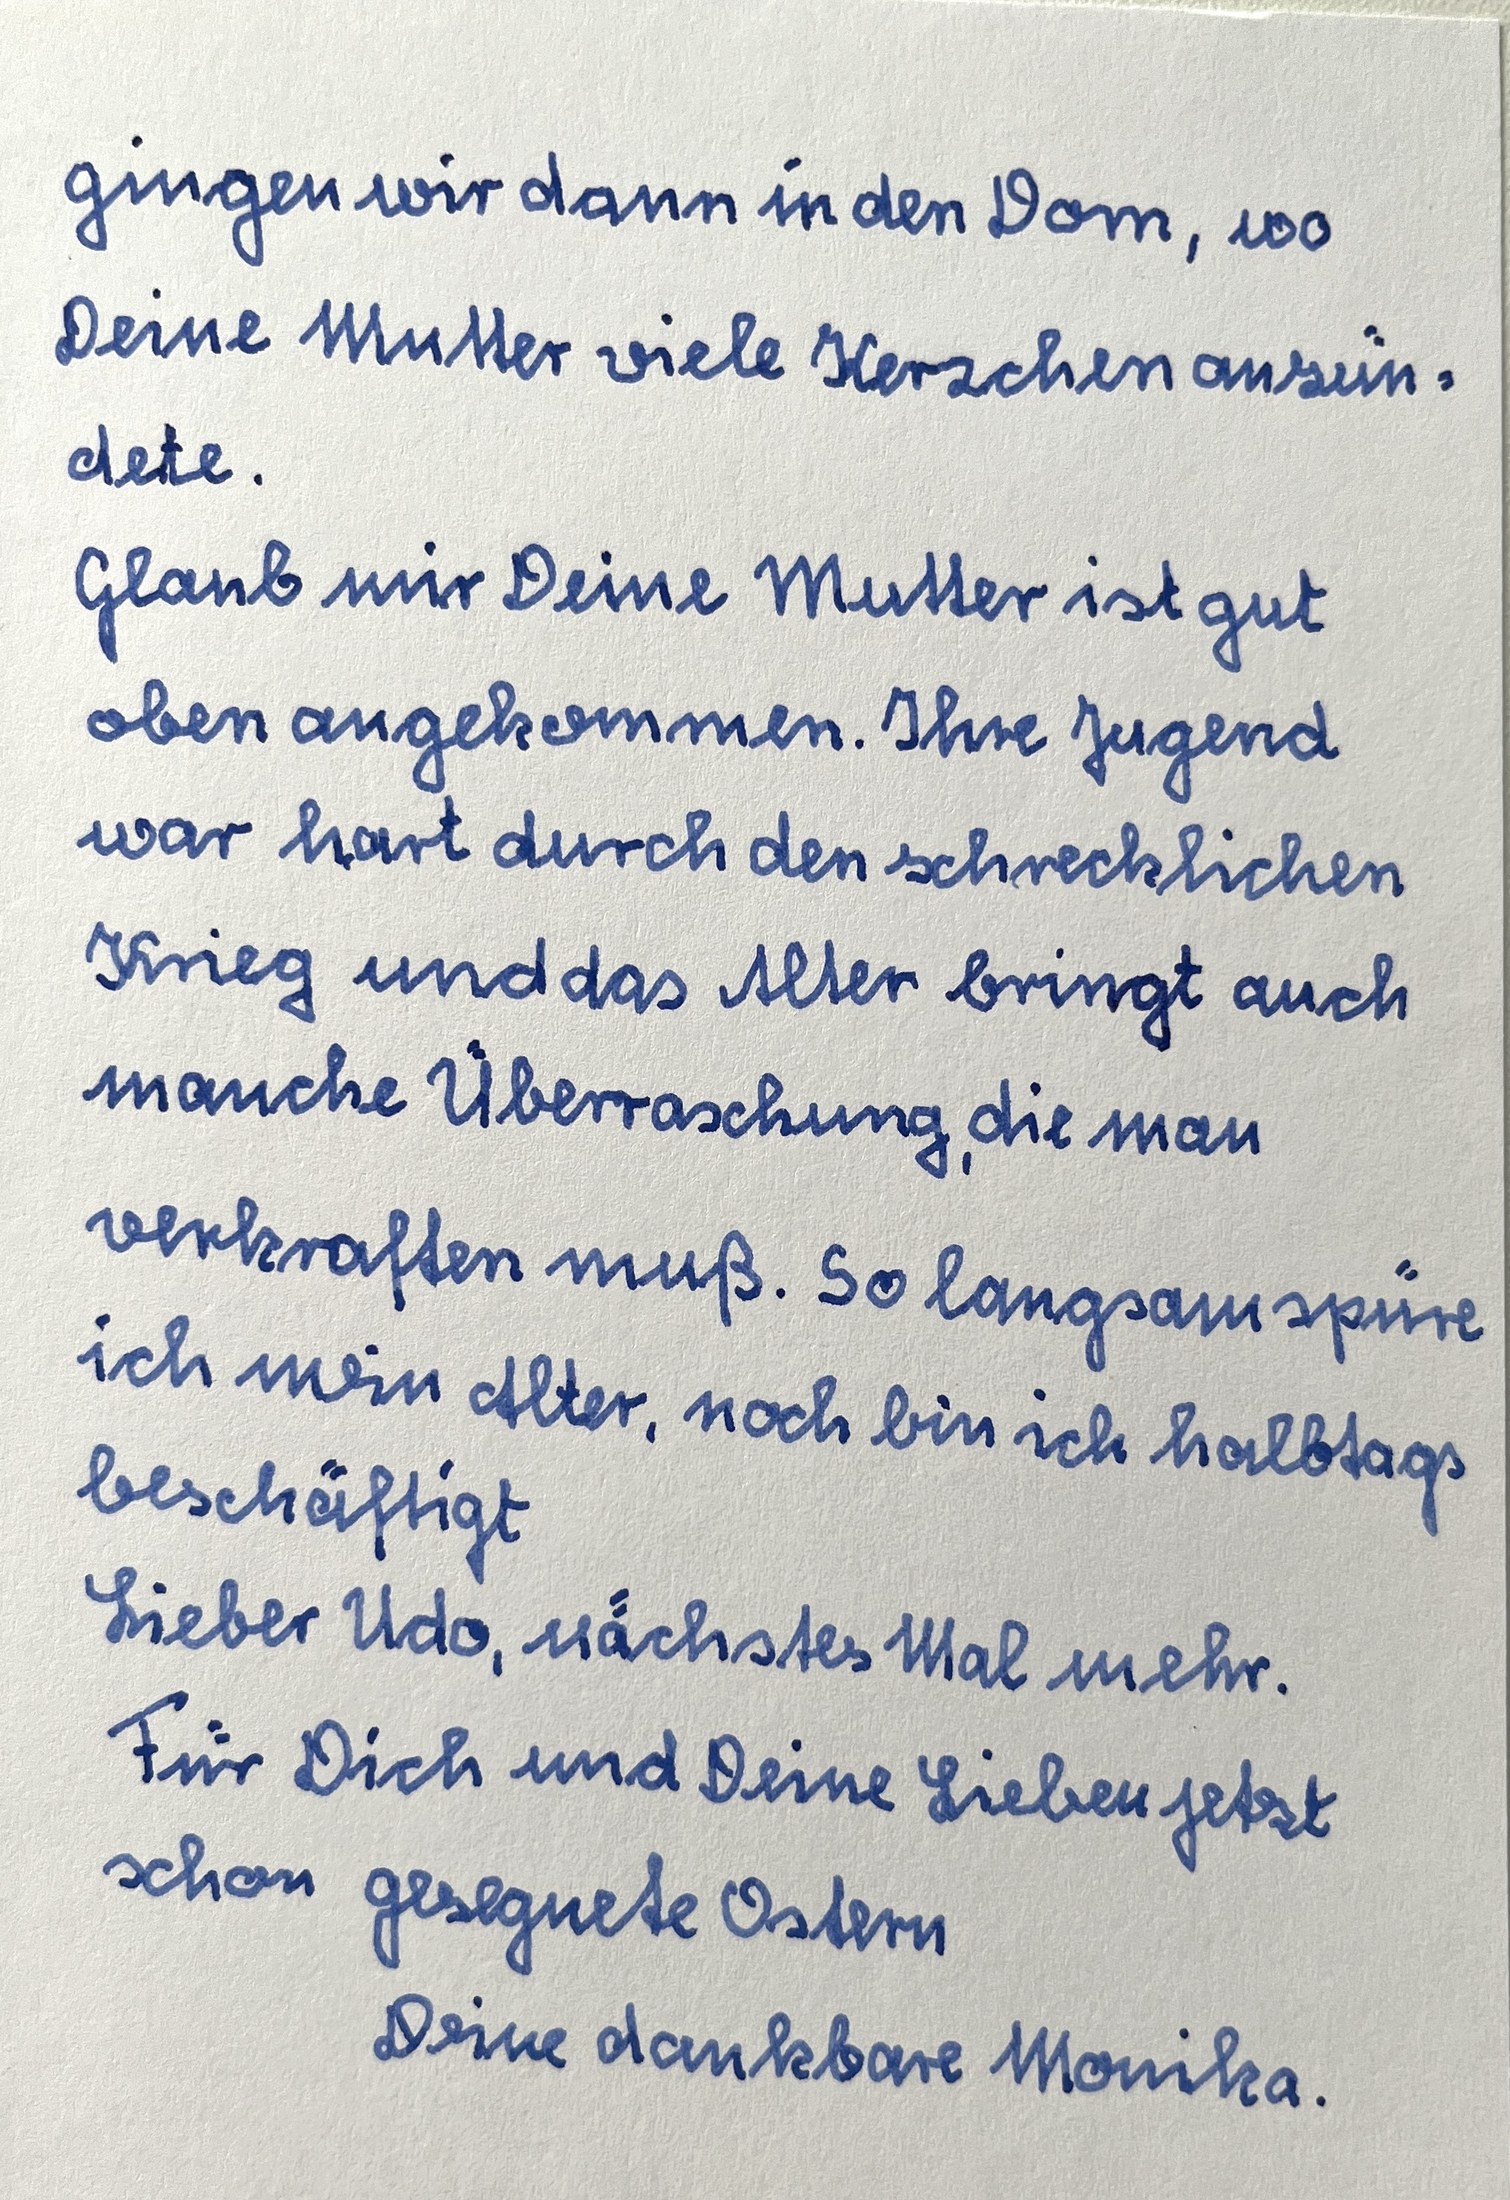 gingen wir dann in den Dom, wo
Deine Mutter viele Kerzchen anzün-
dete.
Glaub mir Deine Mutter ist gut
oben angekommen. Ihre Jugend
war hart durch den schrecklichen
Krieg und das Alter bringt auch
manche Überraschung, die man
verkraften muß. So langsam spüre
ich mein Alter, noch bin ich halbtags
beschäftigt
Lieber Udo, nächstes Mal mehr.
Für Dich und Deine Lieben jetzt
schon gesegnete Ostern
Deine dankbare Monika.